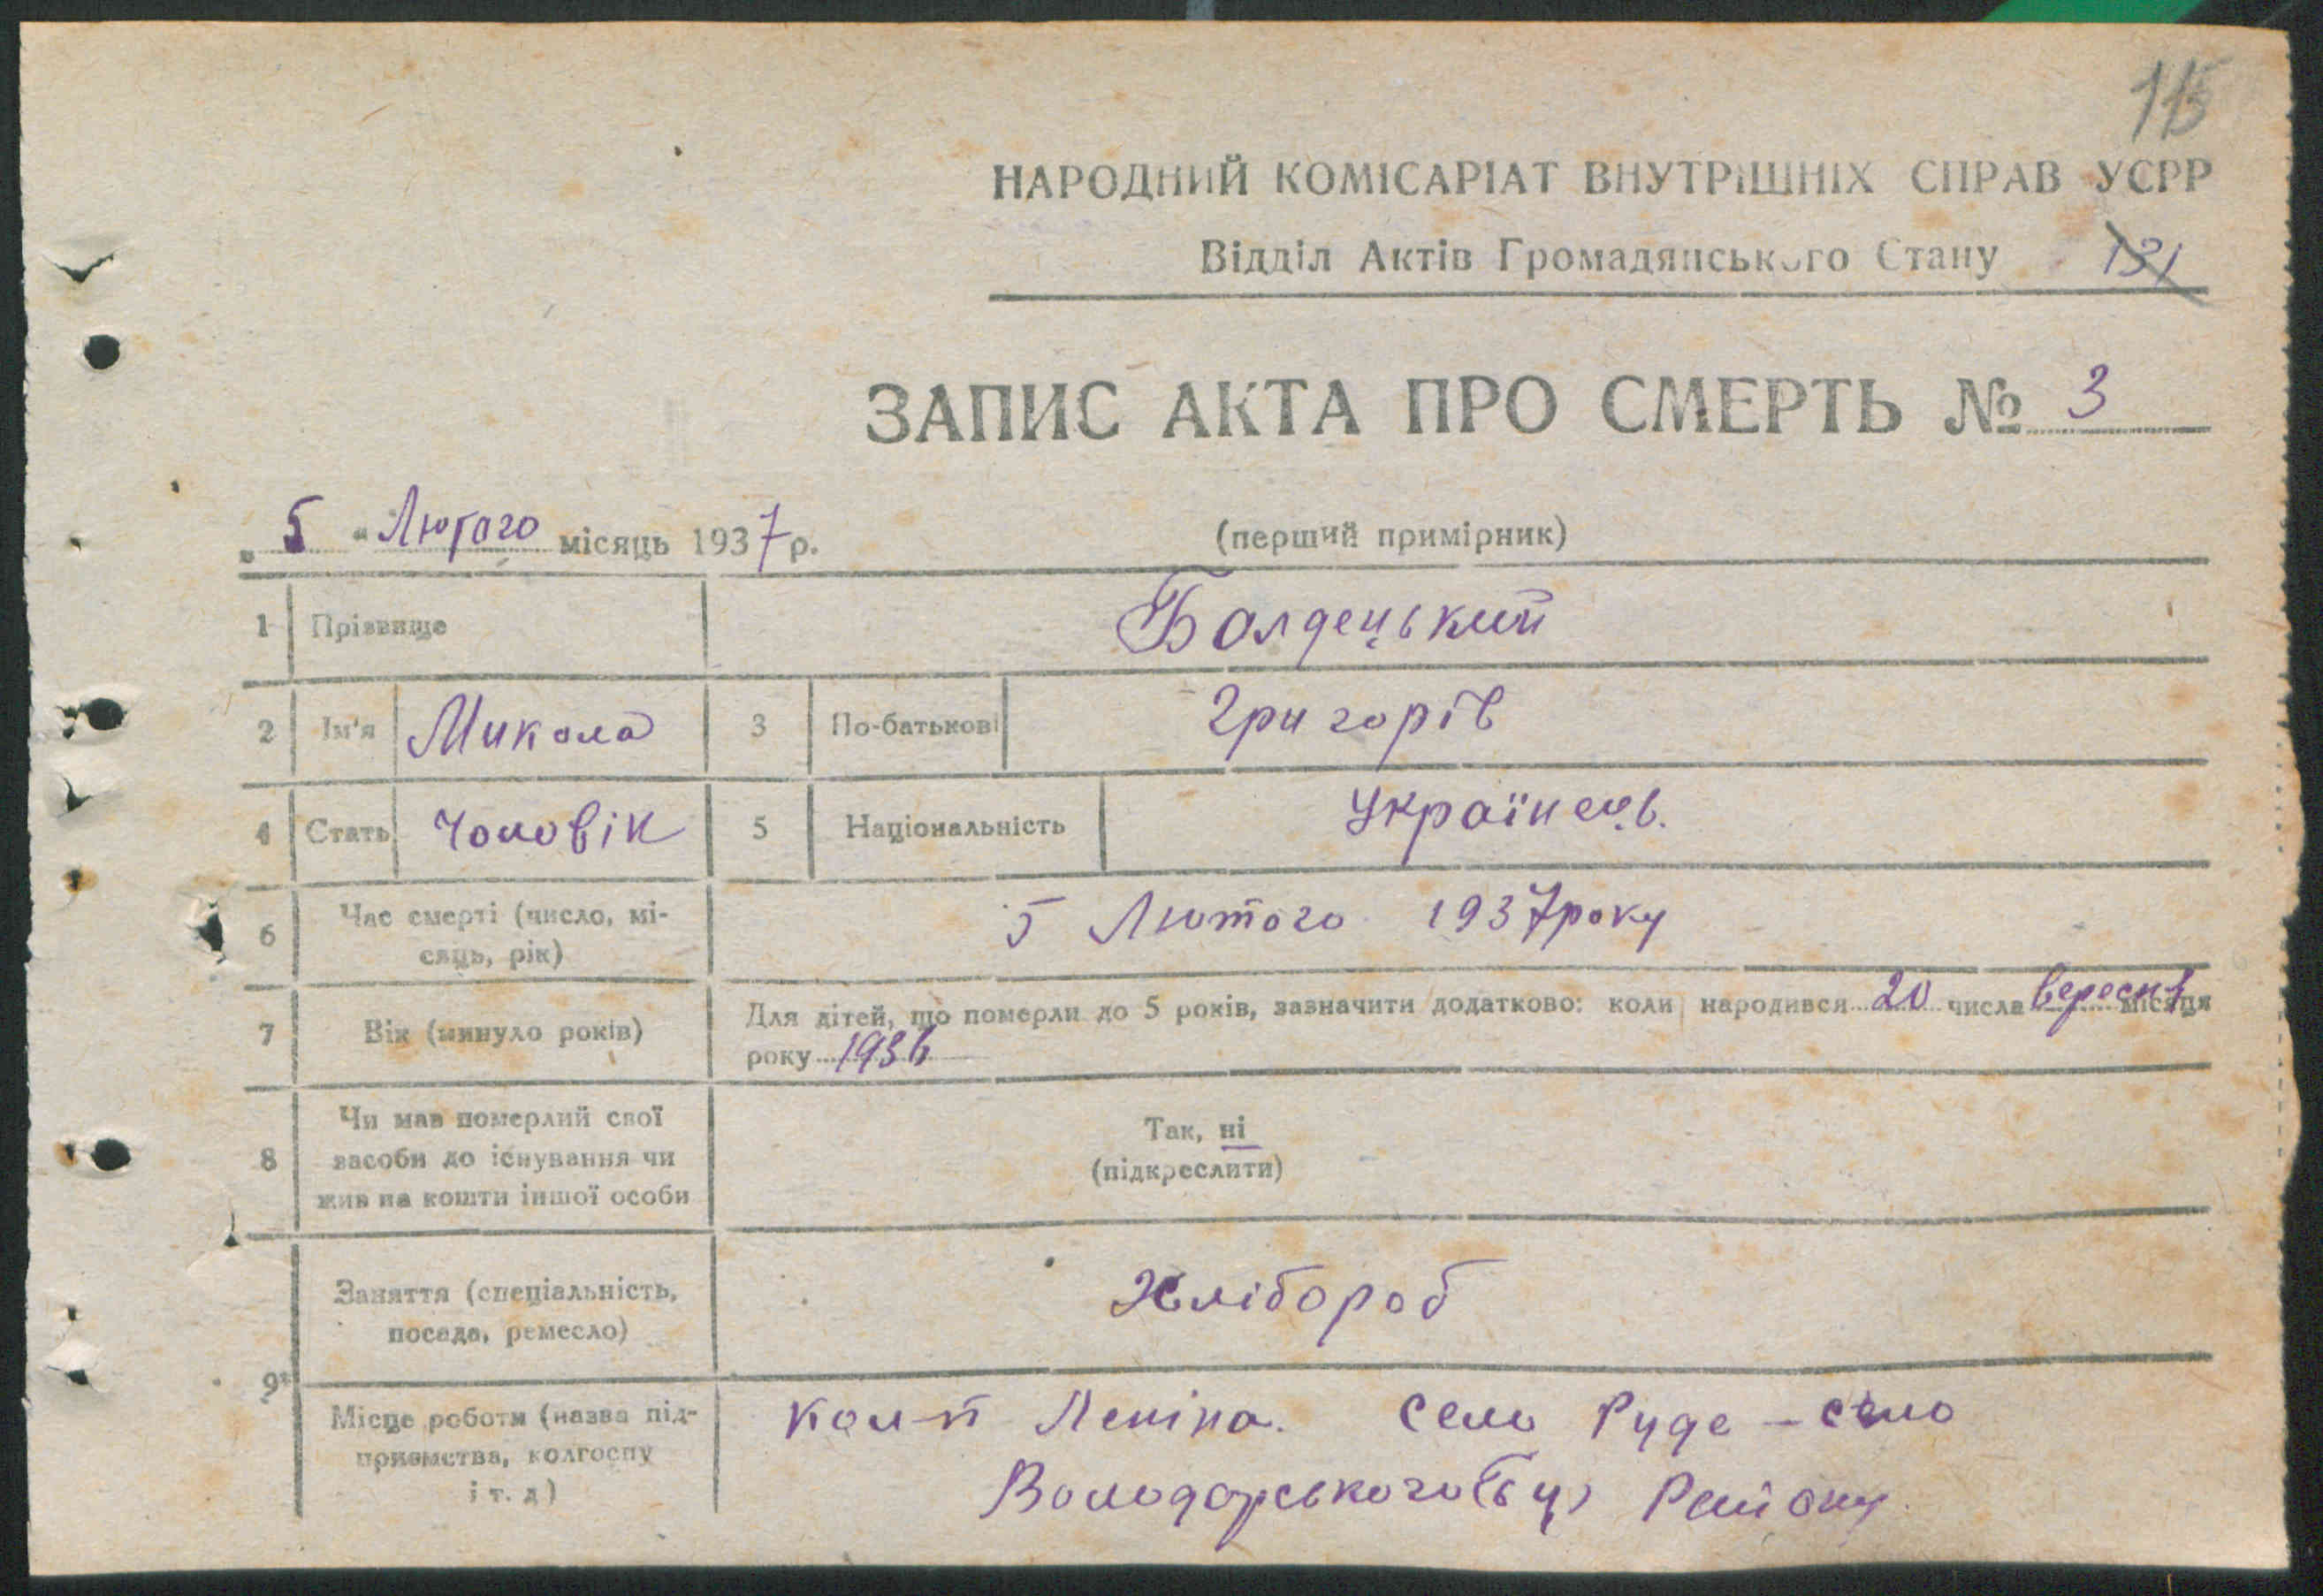 115
НАРОДНИЙ КОМІСАРІАТ ВНУТРІШНІХ СПРАВ УСРР
Відділ Актів Громадянського Стану 131
ЗАПИС АКТА ПРО СМЕРТЬ № 3
„ 5 “ Лютого місяць 1937 р. (перший примірник)
1 Прізвище Болдецький
2 Ім'я Микола 3 По-батькові Григорів
4 Стать Чоловік 5 Національність Українець.
6 Час смерті (число, мі-
сяць, рік) 5 Лютого 1937 року
7 Вік (минуло років) Для дітей, що померли до 5 років, зазначити додатково: коли народився 20 числа вересня місяця
року 1936
8 Чи мав померлий свої
засоби до існування чи
жив на кошти іншої особи
Так, ні
(підкреслити)
9 Заняття (спеціальність,
посада, ремесло) Хлібороб
Місце роботи (назва під-
приємства, колгоспу
і т. д)
Кол-п Леніна. село Руде-село
Володарського (бц) Району